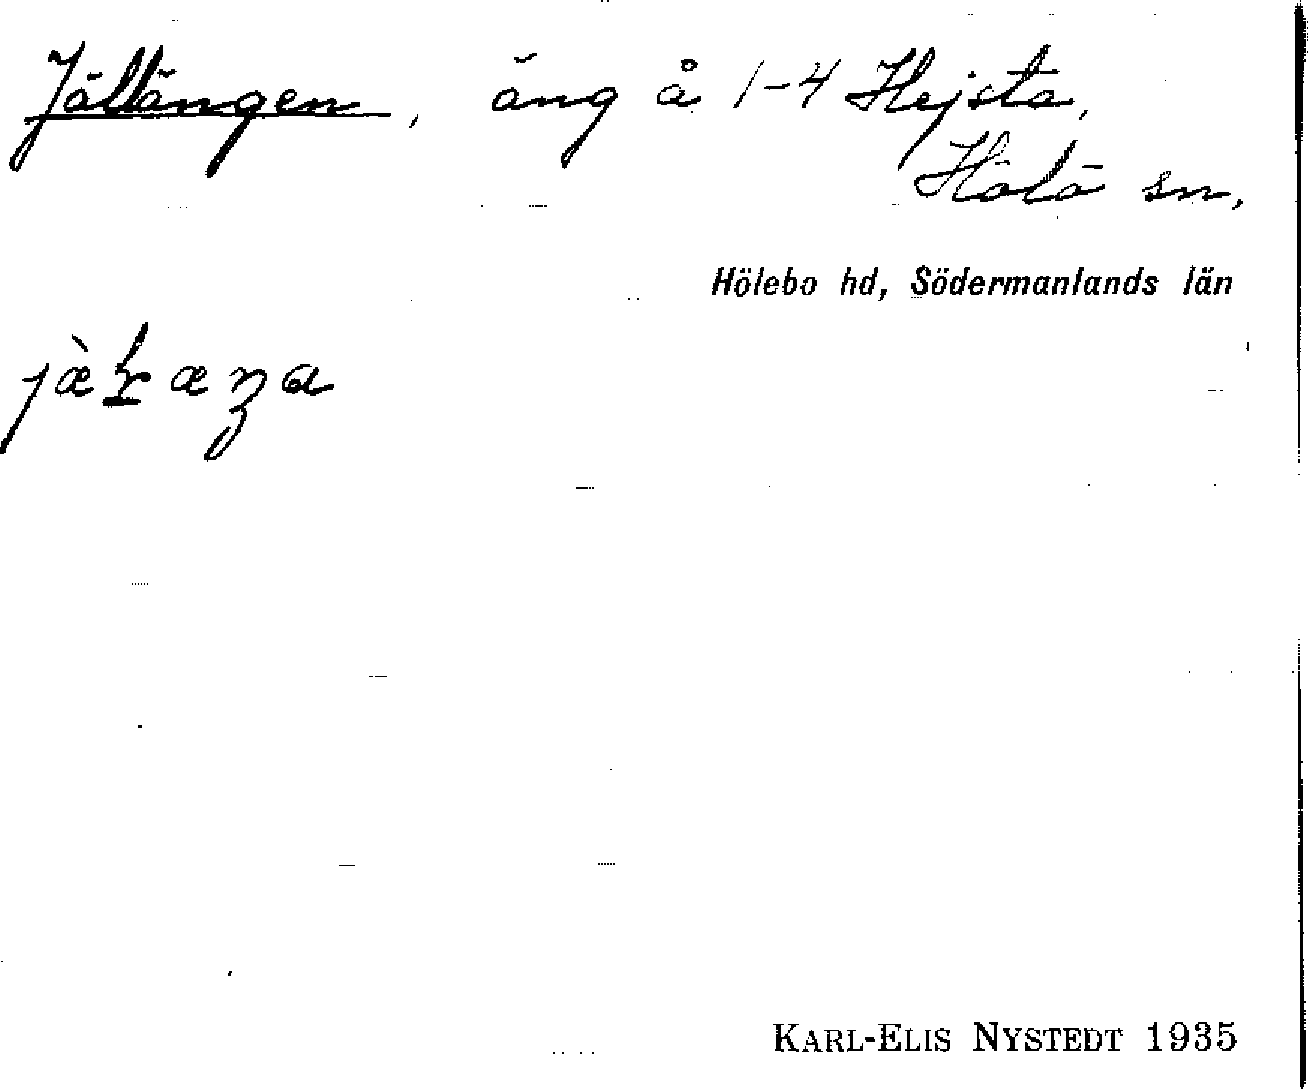 Jällängen, äng å 1-4 Hejsta,
Hölö sn,
Hölebo hd, Södermanlands län
KARL-ELIS NYSTEDT 1935